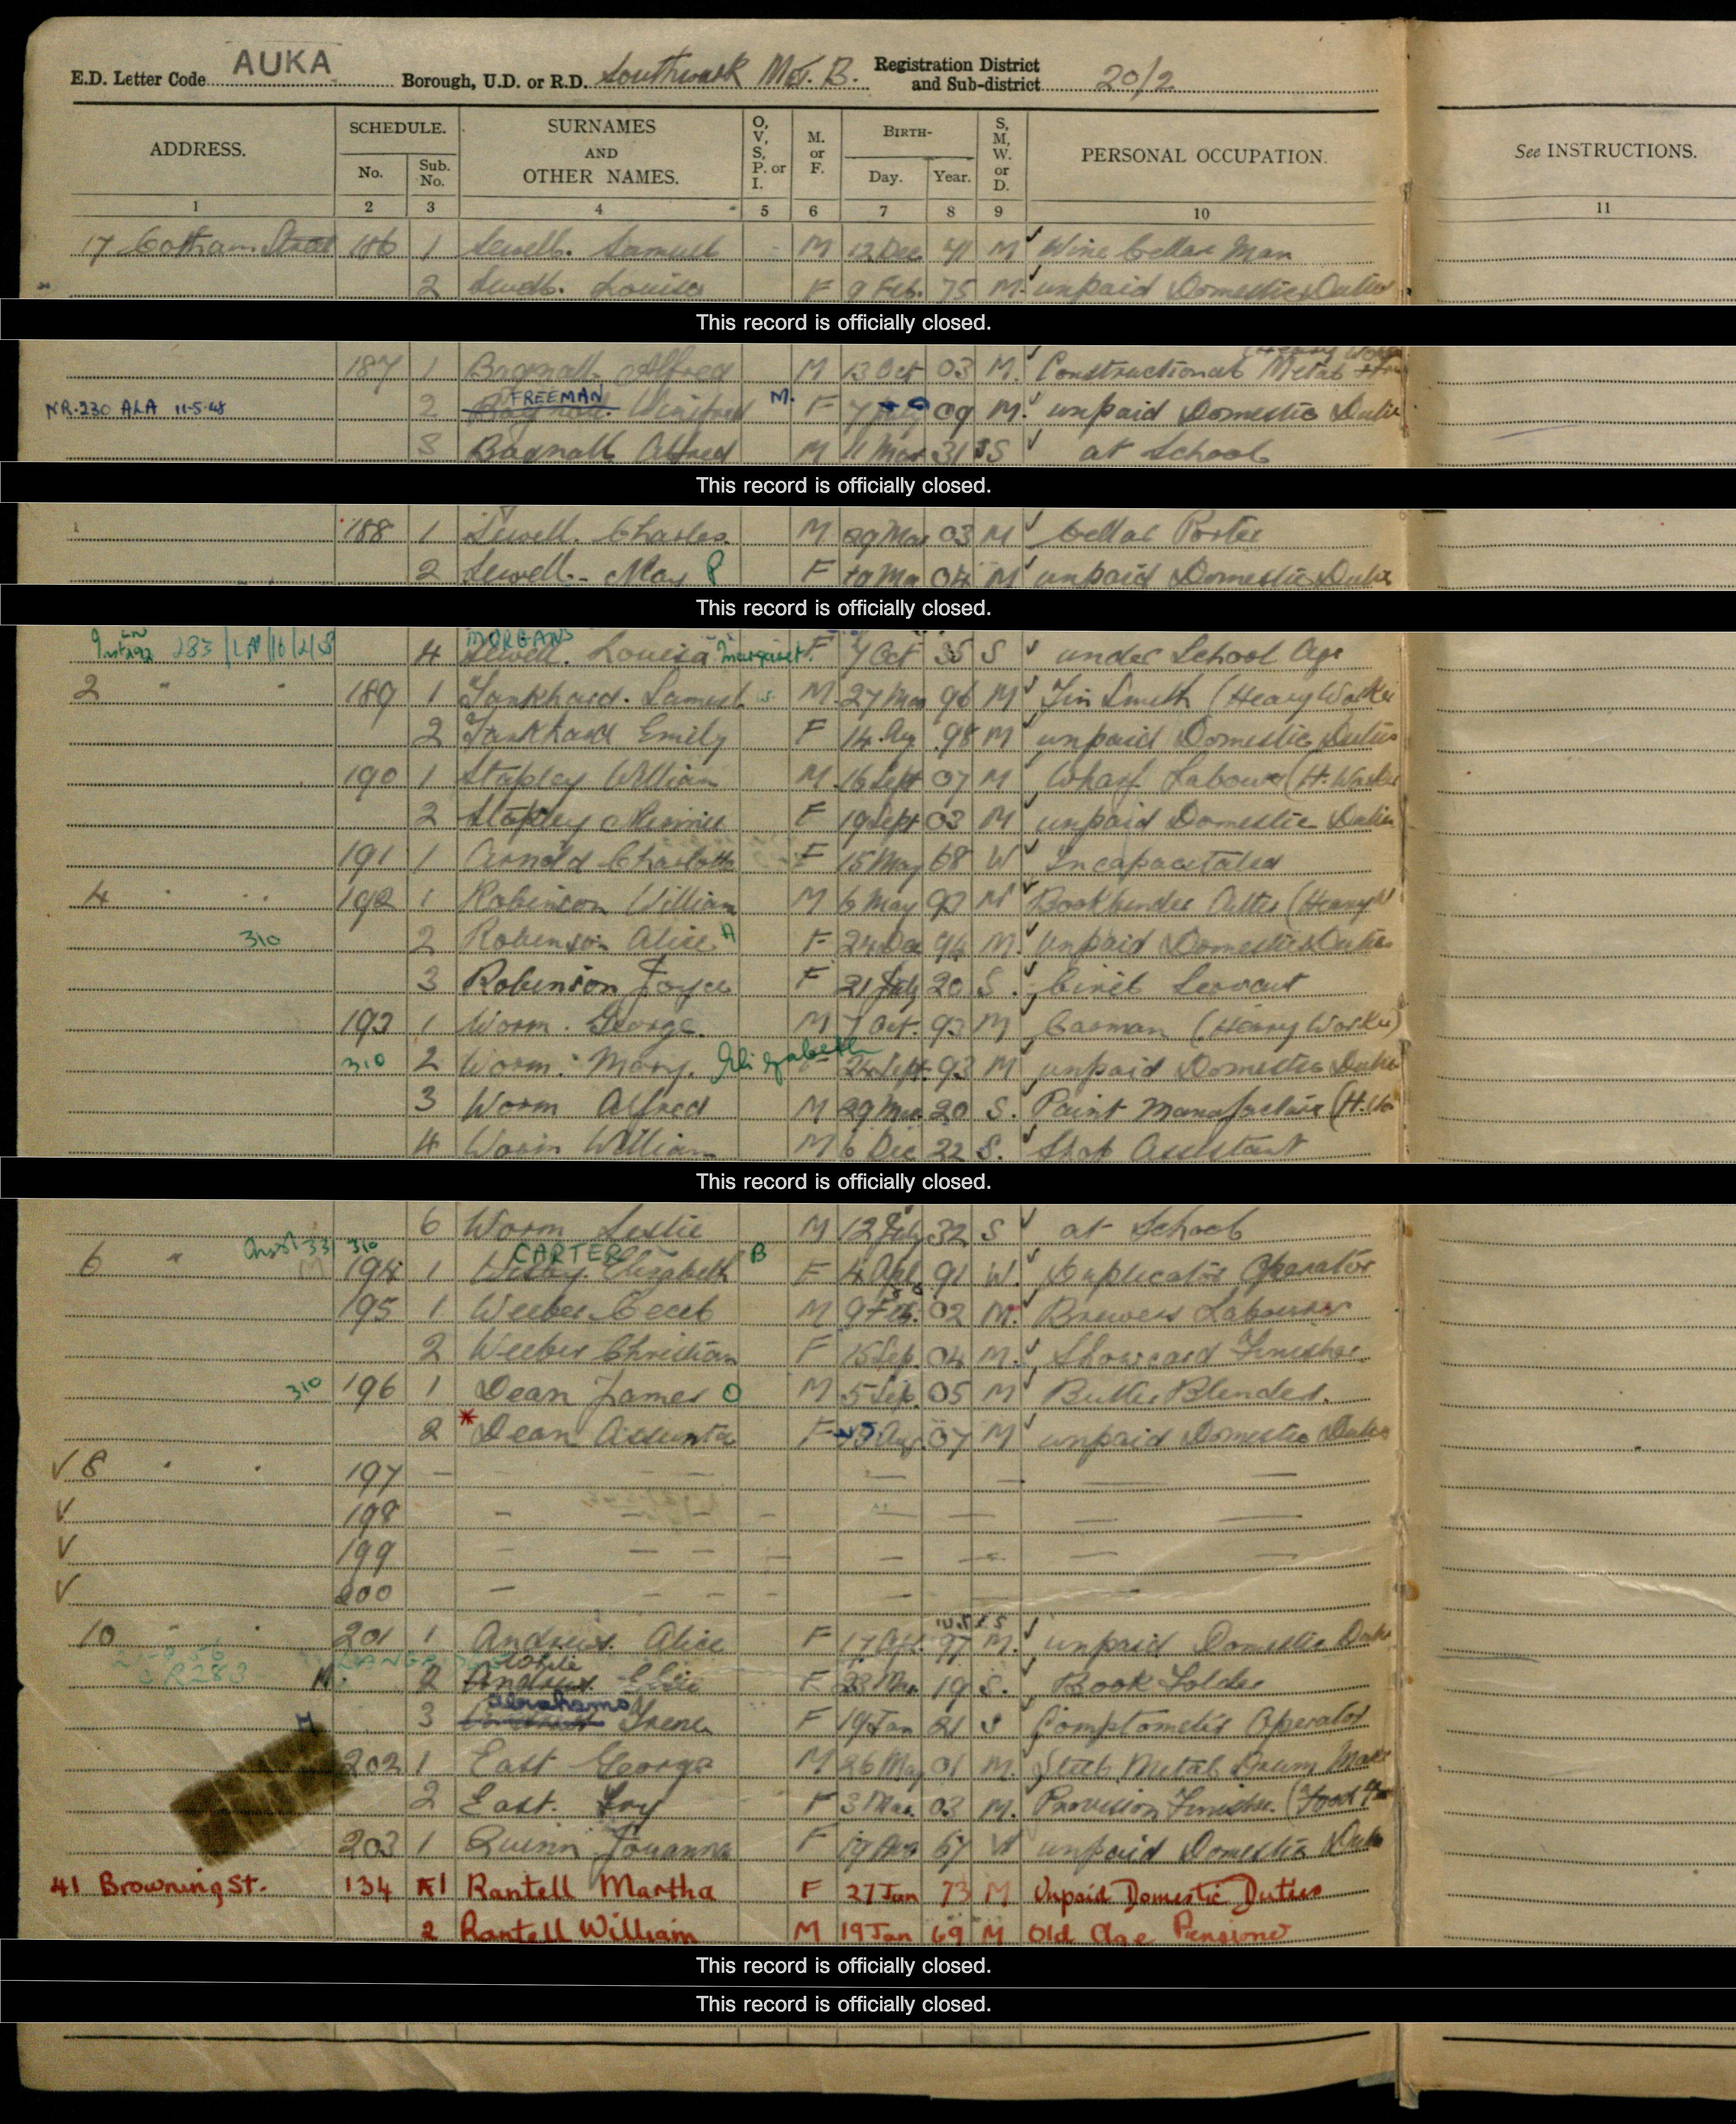 E.D. Letter Code AUKA Borough, U.D. or R.D. Southwark Met. B. Registration District and Sub-district 20/2
ADDRESS. SCHEDULE. No. Sub. No. SURNAMES AND OTHER NAMES. O, V, S, P. or I. M. or F. BIRTH- Day. Year. S, M, W. or D. PERSONAL OCCUPATION. See INSTRUCTIONS.
1 2 3 4 5 6 7 8 9 10 11
17 Cotham Street 186 1 Sewell. Samuel - M 12 Dec 71 M Wine Cellar Man
" 2 Sewell. Louisa F 9 Feb. 75 M. unpaid Domestic Duties
This record is officially closed.
187 1 Bagnall Alfred M 13 Oct 03 M. Constructional Metal
NR.230 ALA 11-5-48 2 FREEMAN Winifred M. F 7 July 09 M. unpaid Domestic Duties
3 Bagnall Alfred M 11 Mar 31 S at School
This record is officially closed.
188 1 Sewell. Charles M 29 Mar 03 M Cellar Porter
2 Sewell. May P F 10 Mar 04 M unpaid Domestic Duties
This record is officially closed.
MORGANS
4 Sewell. Louisa Margaret F 7 Oct 35 S under School Age
2 " " 189 1 Tankhard. Samuel M 27 Mar 96 M Tin Smith (Heavy Worker
2 Tankhard Emily F 14 Aug 98 M unpaid Domestic Duties
190 1 Stapley William M 16 Sept 07 M Wharf Labourer (H. Worker
2 Stapley Minnie F 19 Sept 03 M unpaid Domestic Duties
191 1 Arnold Charlotte F 15 May 68 W Incapacitated
4 " " 192 1 Robinson William M 6 May 92 M Bookbinder Cutter (Heavy W
310 2 Robinson Alice A F 24 Dec 94 M. Unpaid Domestic Duties
3 Robinson Joyce F 21 July 20 S. Civil Servant
193 1 Worm. George. M 7 Oct. 93 M Carman (Heavy Worker)
310 2 Worm. Mary. Elizabeth 24 Sept. 93 M unpaid Domestic Duties
3 Worm Alfred M 29 Mar 20 S. Paint Manufacture (H. Wo
4 Worm William M 6 Dec 22 S. Shop Assistant
This record is officially closed.
6 Worm Leslie M 12 July 32 S at School
6 " 310 CARTER
194 1 Elizabeth B F 4 Apl 91 W. Duplicator Operator
195 1 Weeber Cecil M 9 Feb. 02 M. Brewers Labourer
2 Weeber Christian F 15 Sep. 04 M. Showcard Finisher
310 196 1 Dean James O M 5 Sep. 05 M Butter Blender.
2 * Dean Assunta F 15 Aug 07 M unpaid Domestic Duties
✓ 8 " " 197 — — — — — —
✓ 198 — — — — — —
✓ 199 — — — — —
✓ 200 — — — — —
10 " " 201 1 Andrews Alice F 17 Apl 97 M. unpaid Domestic Duties
21-9-56 CR283 2 Andrews F 23 Mar 19 S. Book Folder
Abrahams
3 Irene F 19 Jan 21 S Comptometer Operator
202 1 East George M 26 May 01 M. Steel Metal Drum Make
2 East. Ivy F 3 Mar. 03 M. Provision Finisher (Food
203 1 Quinn Johanna F 67 W unpaid Domestic Duties
41 Browning St. 134 1 Rantell Martha F 27 Jan 73 M Unpaid Domestic Duties
2 Rantell William M 19 Jan 69 M Old Age Pensioner
This record is officially closed.
This record is officially closed.